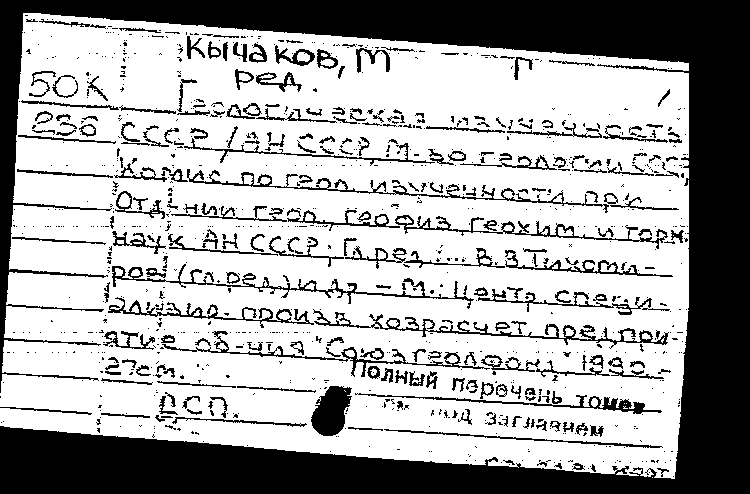 Кычаков, М Г
ред.
50К Геологическая изученность
236 СССР / АН СССР, М-во геологии СССР,
Комис. по геол. изученности при
Отд-нии геол., геофиз., геохим. и горн.
наук АН СССР; Гл. ред.: ... В.В. Тихоми-
ров (гл. ред.) и др. – М.: Центр. специ-
ализир. произв. хозрасчет. предпри-
ятие об-ния "Союзгеолфонд", 1990. –
27см.
Полный перечень томов
см. под заглавием
ДСП.